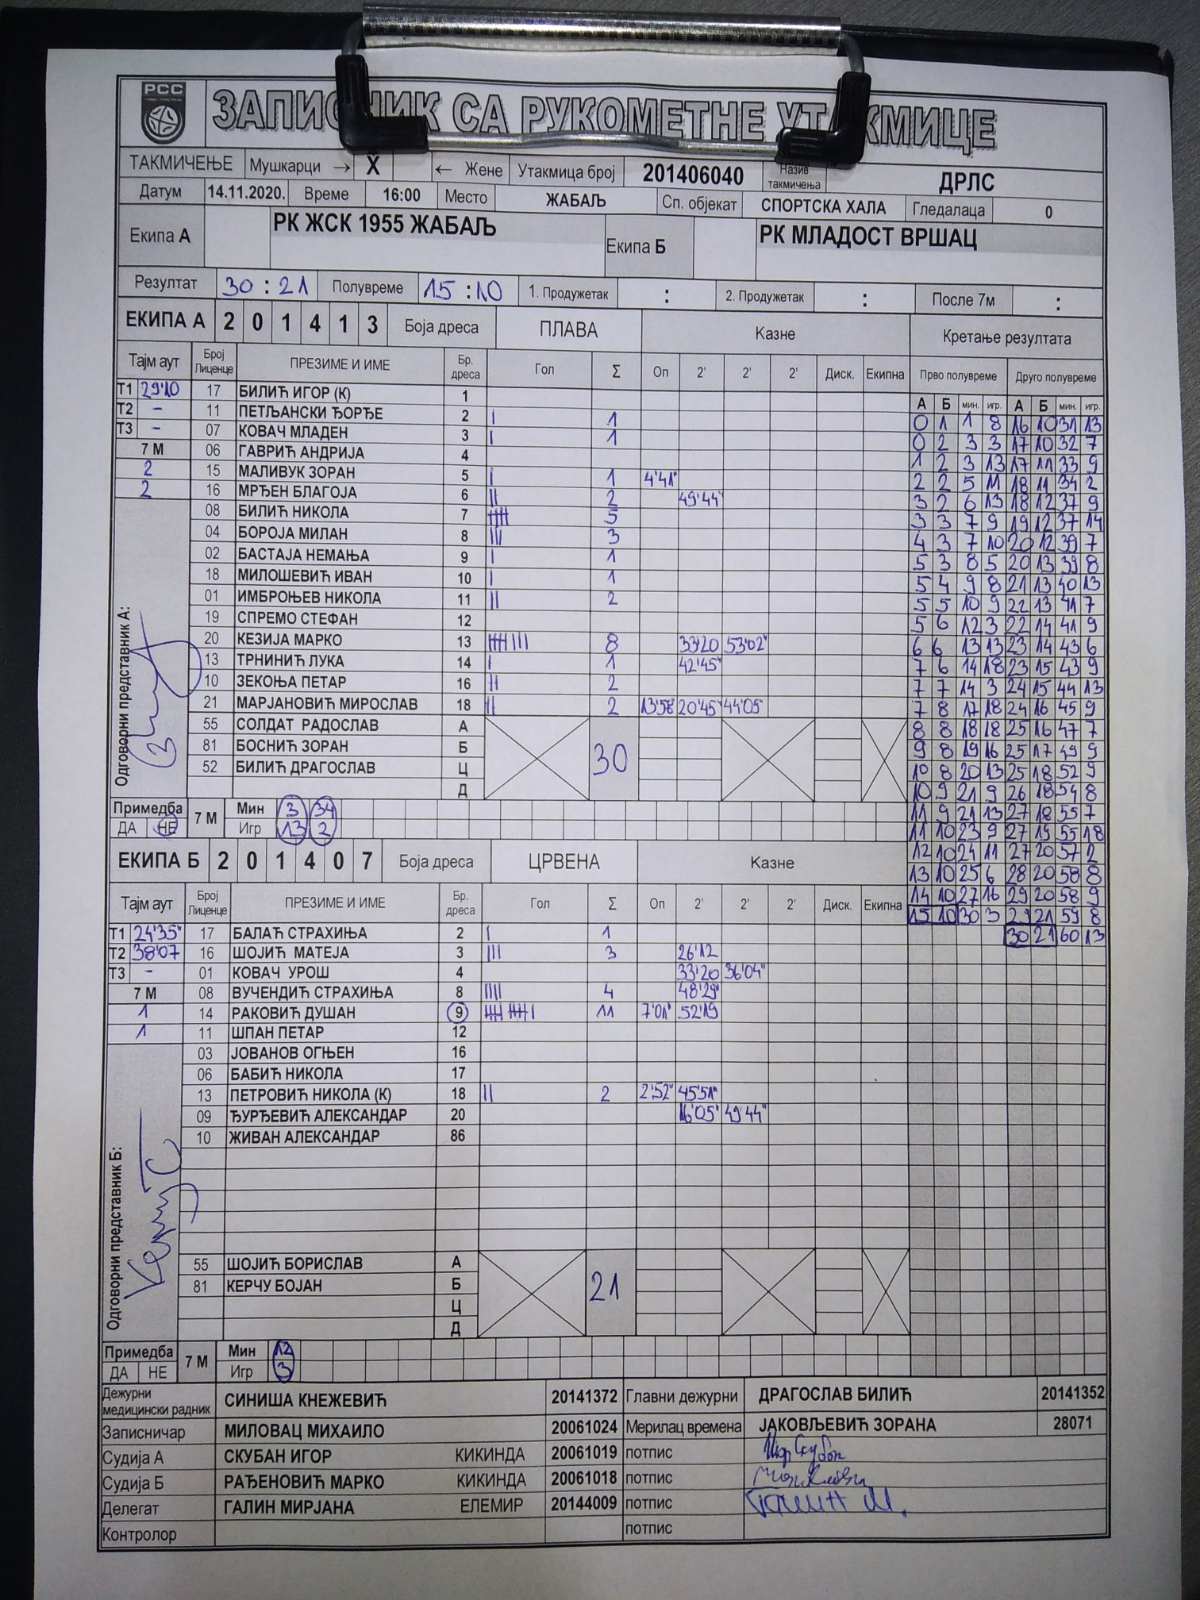 РСС
ЗАПИСНИК СА РУКОМЕТНЕ УТАКМИЦЕ
ТАКМИЧЕЊЕ Мушкарци → X ← Жене Утакмица број 201406040 Назив такмичења ДРЛС
Датум 14.11.2020. Време 16:00 Место ЖАБАЉ Сп. објекат СПОРТСКА ХАЛА Гледалаца 0
Екипа А РК ЖСК 1955 ЖАБАЉ Екипа Б РК МЛАДОСТ ВРШАЦ
Резултат 30 : 21 Полувреме 15 : 10 1. Продужетак : 2. Продужетак : После 7м :
ЕКИПА А 2 0 1 4 1 3 Боја дреса ПЛАВА Казне Кретање резултата
Тајм аут Број Лиценце ПРЕЗИМЕ И ИМЕ Бр. дреса Гол Σ Оп 2' 2' 2' Диск. Екипна Прво полувреме Друго полувреме
А Б мин. игр. А Б мин. игр.
Т1 29'10 17 БИЛИЋ ИГОР (К) 1
Т2 - 11 ПЕТЉАНСКИ ЂОРЂЕ 2 I 1
Т3 - 07 КОВАЧ МЛАДЕН 3 I 1
7 М 06 ГАВРИЋ АНДРИЈА 4
2 15 МАЛИВУК ЗОРАН 5 I 1 4'41"
2 16 МРЂЕН БЛАГОЈА 6 II 2 49'44"
08 БИЛИЋ НИКОЛА 7 IIIII 5
04 БОРОЈА МИЛАН 8 III 3
02 БАСТАЈА НЕМАЊА 9 I 1
18 МИЛОШЕВИЋ ИВАН 10 I 1
01 ИМБРОЊЕВ НИКОЛА 11 II 2
19 СПРЕМО СТЕФАН 12
20 КЕЗИЈА МАРКО 13 IIIII III 8 33'20 53'02"
13 ТРНИНИЋ ЛУКА 14 I 1 42'45"
10 ЗЕКОЊА ПЕТАР 16 II 2
21 МАРЈАНОВИЋ МИРОСЛАВ 18 II 2 13'58 20'45" 44'05"
55 СОЛДАТ РАДОСЛАВ А
81 БОСНИЋ ЗОРАН Б 30
52 БИЛИЋ ДРАГОСЛАВ Ц
Д
Одговорни представник А:
Примедба 7 М Мин 3 34
ДА НЕ Игр 13 2
0 1 1 8 16 10 31 13
0 2 3 3 17 10 32 7
1 2 3 13 17 11 33 9
2 2 5 11 18 11 34 2
3 2 6 13 18 12 37 9
3 3 7 9 19 12 37 14
4 3 7 10 20 12 39 7
5 3 8 5 20 13 39 8
5 4 9 8 21 13 40 13
5 5 10 9 22 13 41 7
5 6 12 3 22 14 41 9
6 6 13 13 23 14 43 6
7 6 14 18 23 15 43 9
7 7 14 3 24 15 44 13
7 8 17 18 24 16 45 9
8 8 18 18 25 16 47 7
9 8 19 16 25 17 49 9
10 8 20 13 25 18 52 9
10 9 21 9 26 18 54 8
11 9 21 13 27 18 55 7
11 10 23 9 27 19 55 18
12 10 24 11 27 20 57 2
13 10 25 6 28 20 58 8
14 10 27 16 29 20 58 9
15 10 30 3 29 21 59 8
30 21 60 13
ЕКИПА Б 2 0 1 4 0 7 Боја дреса ЦРВЕНА Казне
Тајм аут Број Лиценце ПРЕЗИМЕ И ИМЕ Бр. дреса Гол Σ Оп 2' 2' 2' Диск. Екипна
Т1 24'35" 17 БАЛАЋ СТРАХИЊА 2 I 1
Т2 38'07 16 ШОЈИЋ МАТЕЈА 3 III 3 26'12
Т3 - 01 КОВАЧ УРОШ 4 33'20 36'04"
7 М 08 ВУЧЕНДИЋ СТРАХИЊА 8 IIII 4 48'29"
1 14 РАКОВИЋ ДУШАН 9 IIIII IIIII I 11 7'01" 52'19
1 11 ШПАН ПЕТАР 12
03 ЈОВАНОВ ОГЊЕН 16
06 БАБИЋ НИКОЛА 17
13 ПЕТРОВИЋ НИКОЛА (К) 18 II 2 2'52" 45'51"
09 ЂУРЂЕВИЋ АЛЕКСАНДАР 20 16'05" 49'44"
10 ЖИВАН АЛЕКСАНДАР 86
Одговорни представник Б:
55 ШОЈИЋ БОРИСЛАВ А
81 КЕРЧУ БОЈАН Б 21
Ц
Д
Примедба 7 М Мин 12
ДА НЕ Игр 3
Дежурни медицински радник СИНИША КНЕЖЕВИЋ 20141372 Главни дежурни ДРАГОСЛАВ БИЛИЋ 20141352
Записничар МИЛОВАЦ МИХАИЛО 20061024 Мерилац времена ЈАКОВЉЕВИЋ ЗОРАНА 28071
Судија А СКУБАН ИГОР КИКИНДА 20061019 потпис
Судија Б РАЂЕНОВИЋ МАРКО КИКИНДА 20061018 потпис
Делегат ГАЛИН МИРЈАНА ЕЛЕМИР 20144009 потпис
Контролор потпис